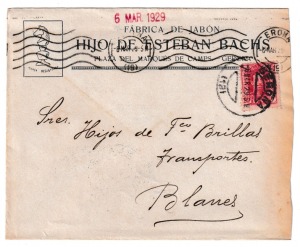 6 MAR. 1929
FÁBRICA DE JABÓN
HIJO DE ESTEBAN BACHS
PLAZA DEL MARQUÉS DE CAMPS. GERONA
GERONA
Sres. Hijos de Tco Brillas
Transportes.
Blanes